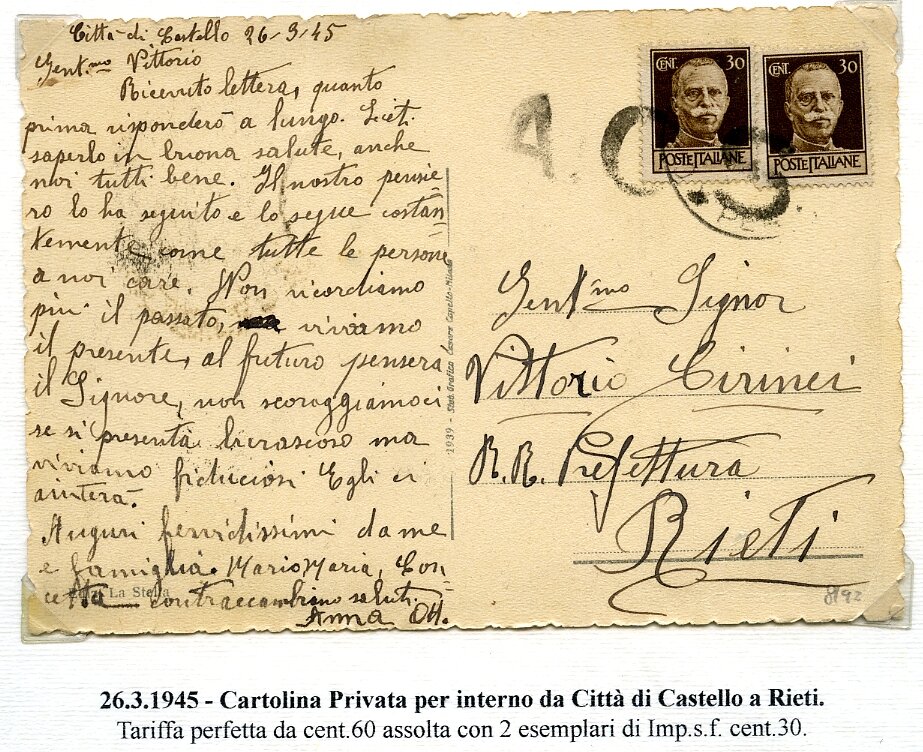 Città di Castello 26-3-45
Gent.mo Vittorio
Ricevuto lettera, quanto
prima risponderò a lungo. Lieti
saperlo in buona salute, anche
noi tutti bene. Il nostro pensie-
ro lo ha seguito e lo segue costan-
temente come tutte le persone
a noi care. Non ricordiamo
più il passato, viviamo
il presente, al futuro penserà
il Signore, non scoraggiamoci
se si presenta burrascoso ma
viviamo fiduciosi Egli ci
aiuterà.
Auguri fervidissimi da me
e famiglia. Mario Maria, Con-
cetta contraccambino saluti.
Anna Ott.
La Stella
1939 - Stab. Grafico Cesare Capello - Milano
CENT. 30
POSTE ITALIANE
CENT. 30
POSTE ITALIANE
A. C.
Gent.mo Signor
Vittorio Cirinei
R. R. Prefettura
Rieti
8192
26.3.1945 - Cartolina Privata per interno da Città di Castello a Rieti.
Tariffa perfetta da cent.60 assolta con 2 esemplari di Imp.s.f. cent.30.